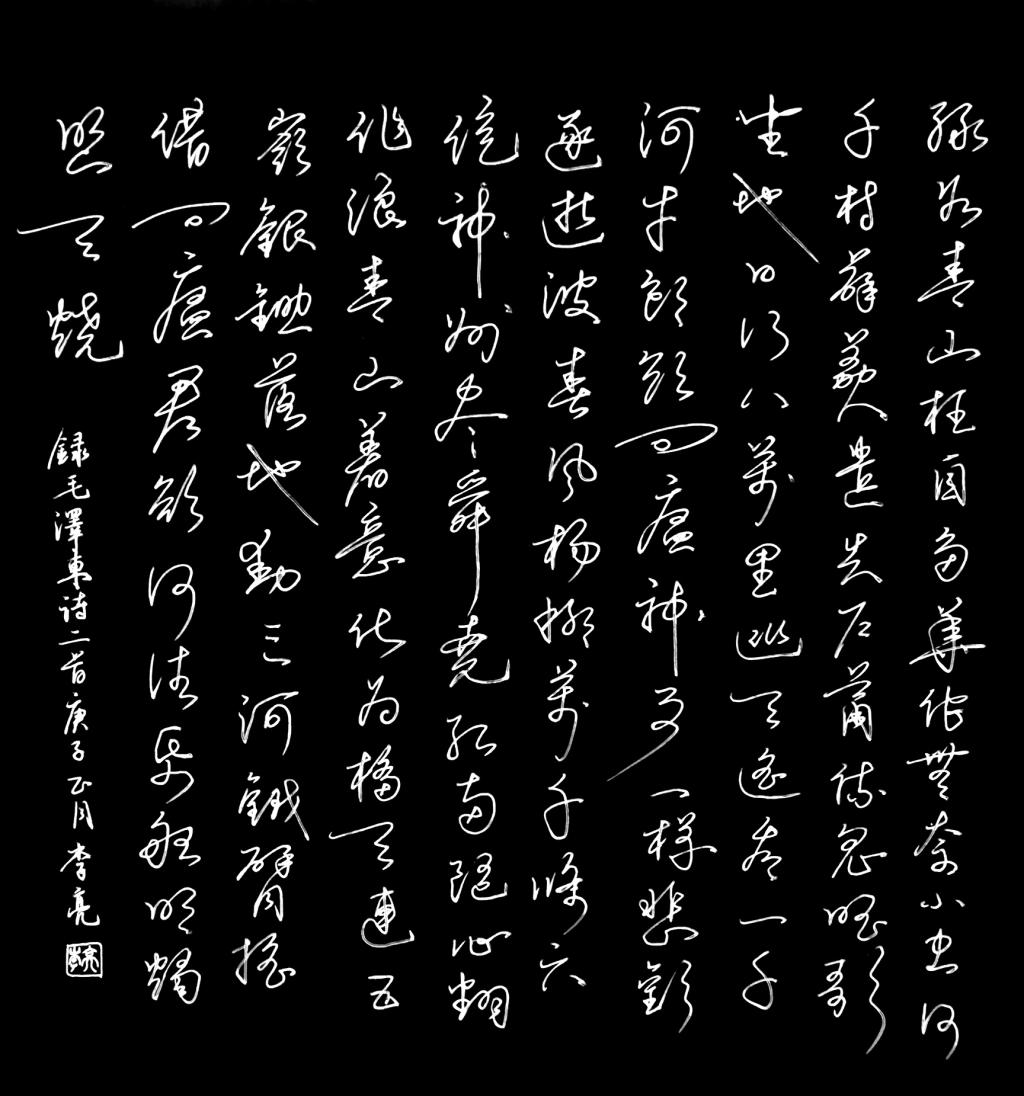 緑水青山枉自多華佗無奈小虫何
千村薜荔人遺矢万户蕭疏鬼唱歌
坐地日行八萬里巡天遙看一千
河牛郎欲問瘟神事一樣悲歡
逐逝波春風楊柳萬千條六
億神州尽舜堯紅雨隨心翻
作浪青山着意化为橋天連五
嶺銀鋤落地動三河鐵臂搖
借問瘟君欲何往紙船明燭
照天燒
録毛澤東诗二首庚子正月李亮